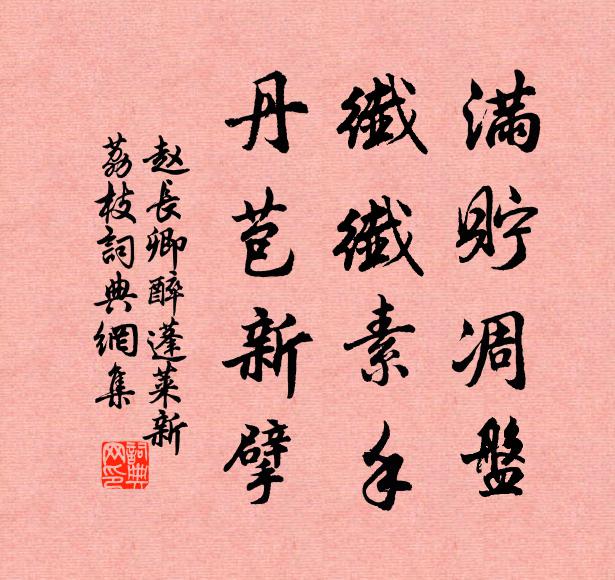 满贮凋盤
纖纖素手
丹苞新擘
赵長卿醉蓬莱新
荔枝詞典網集
詞典網印